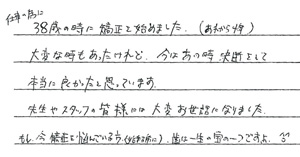 仕事の為に
38歳の時に矯正を始めました。(あれから4年)
大変な時もあったけれど、今はあの時決断をして
本当に良かったと思っています。
先生やスタッフの皆様には大変お世話になりました。
もし、今矯正を悩んでいる方、(始める前に)、歯は一生の宝の一つですよ。^^